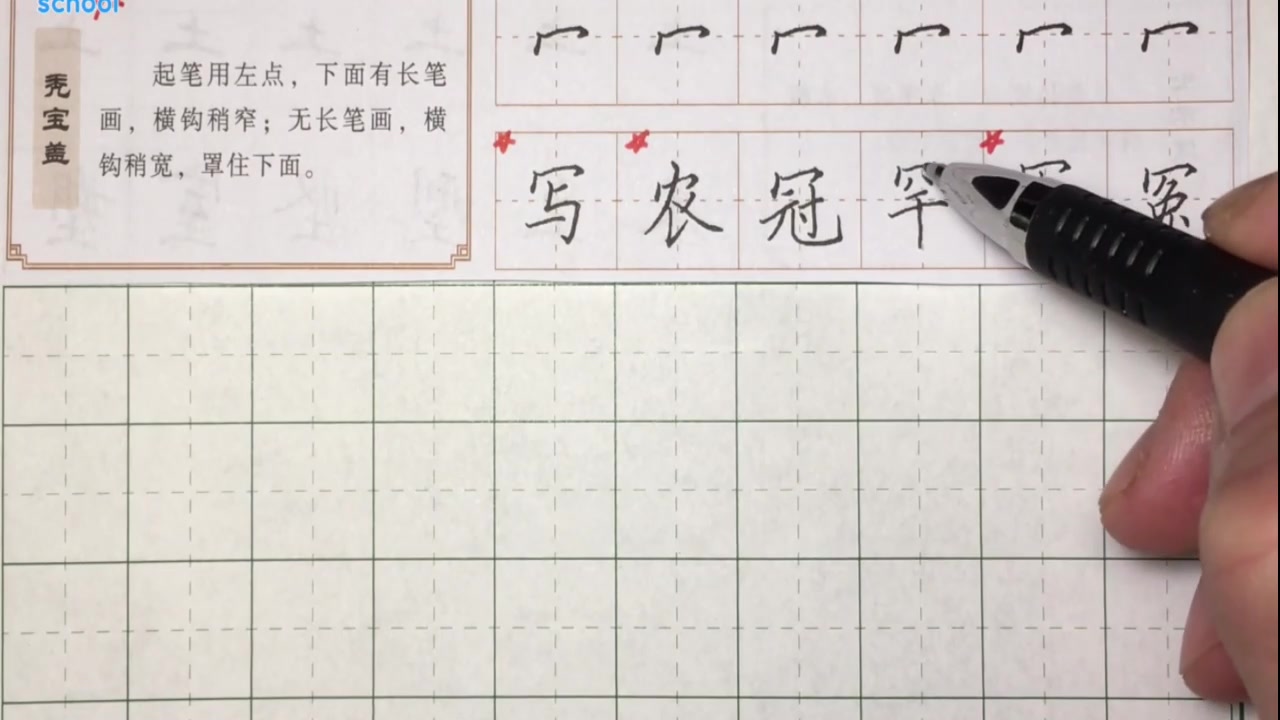 school
秃宝盖
起笔用左点，下面有长笔
画，横钩稍窄；无长笔画，横
钩稍宽，罩住下面。
冖 冖 冖 冖 冖 冖
写 农 冠 罕 冤